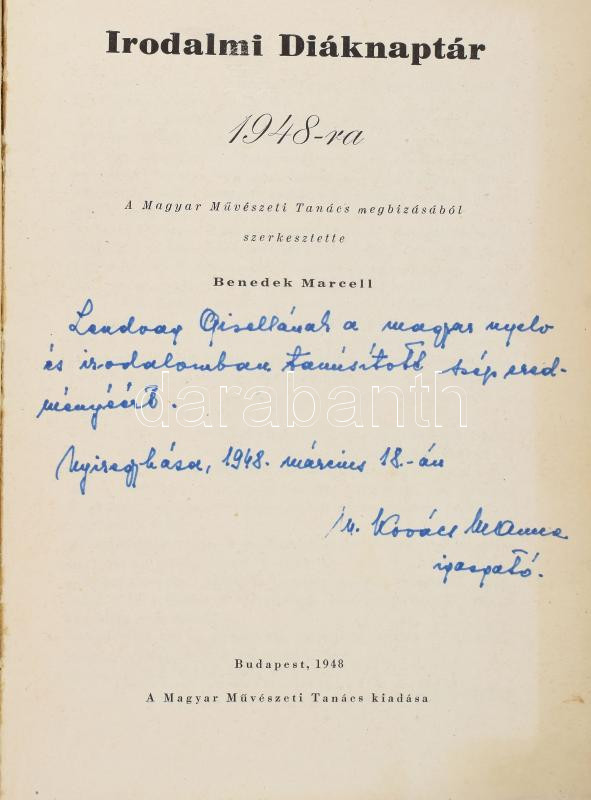 Irodalmi Diáknaptár
1948-ra
A Magyar Művészeti Tanács megbizásából
szerkesztette
Benedek Marcell
Lendvay Gisellának a magyar nyelv
és irodalomban tanúsított szép ered-
ményéért.
darabanth
Nyiregyháza, 1948. március 18.-án
Kovács
igazgató.
Budapest, 1948
A Magyar Művészeti Tanács kiadása